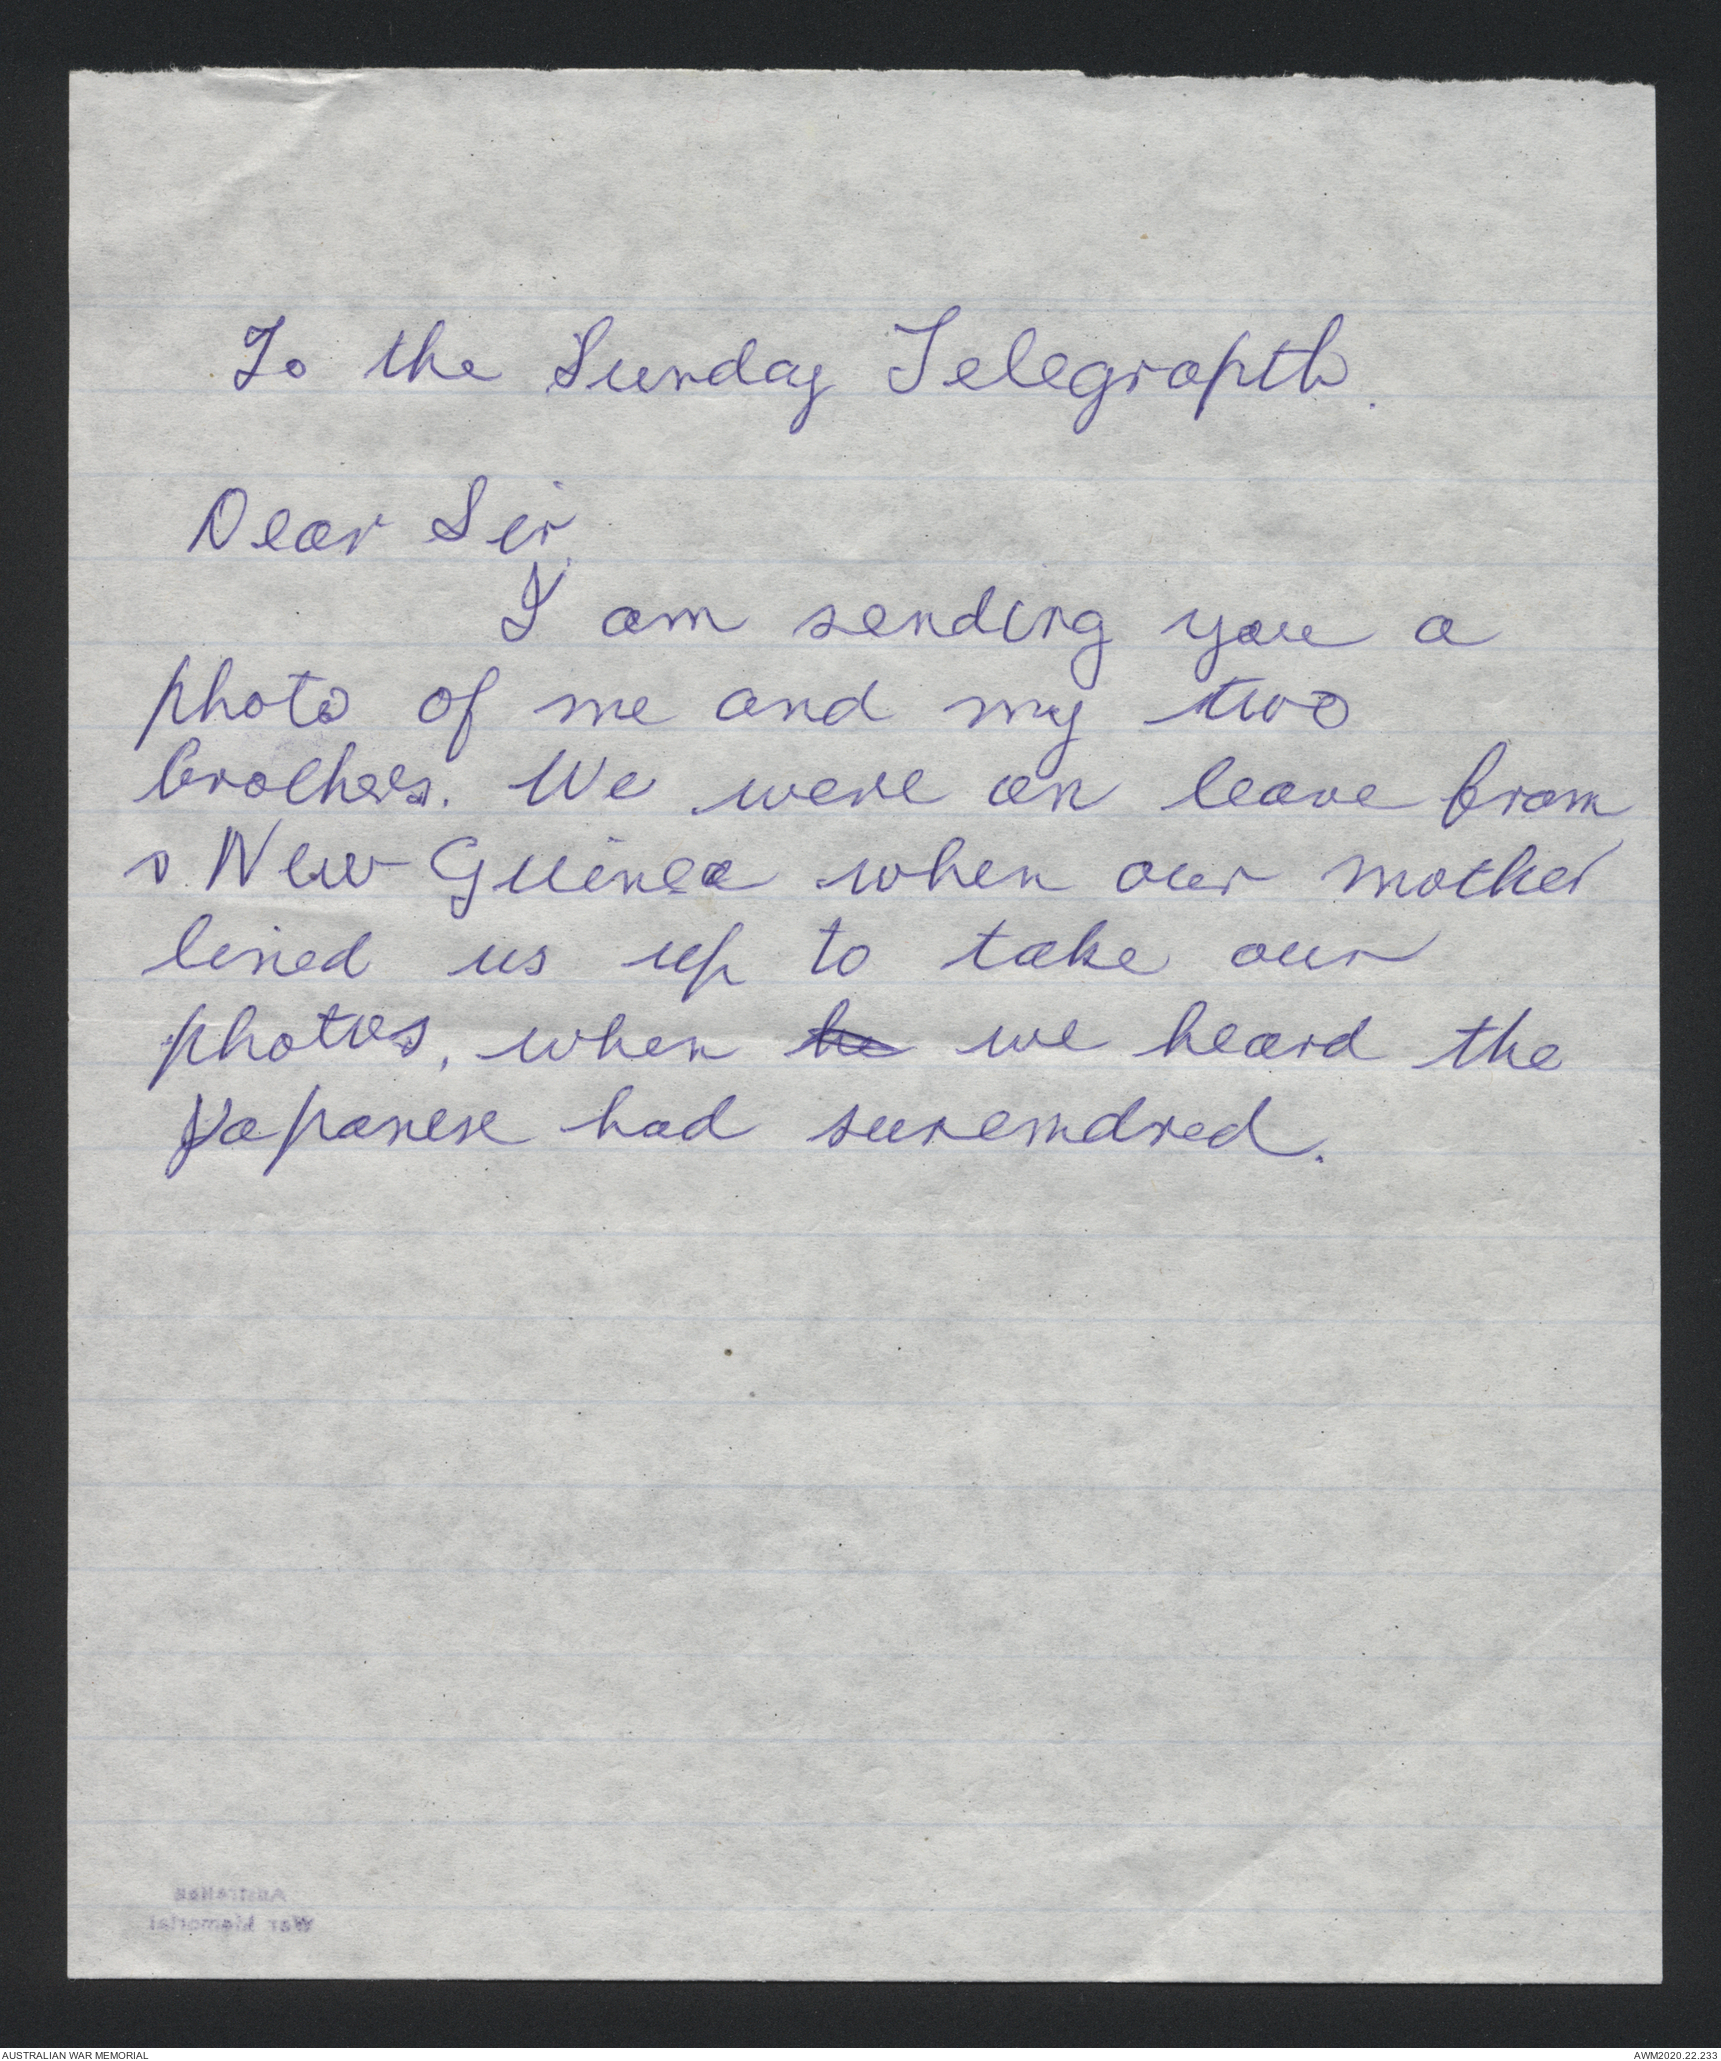 To the Sunday Telegrapth.
Dear Sir,
I am sending you a
photo of me and my two
brothers. We were on leave from
New Guinea when our mother
lined us up to take our
photos, when he we heard the
Japanese had suremdred.
Australian
War Memorial
AUSTRALIAN WAR MEMORIAL
AWM2020.22.233